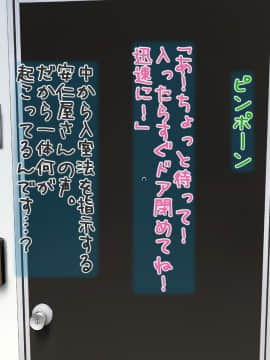 ピンポーン
「あ〜ちょっと待って!
入ったらすぐドア閉めてね!
迅速に!」
中から入室法を指示する
安仁屋さんの声。
だから一体何が
起こってるんです…?